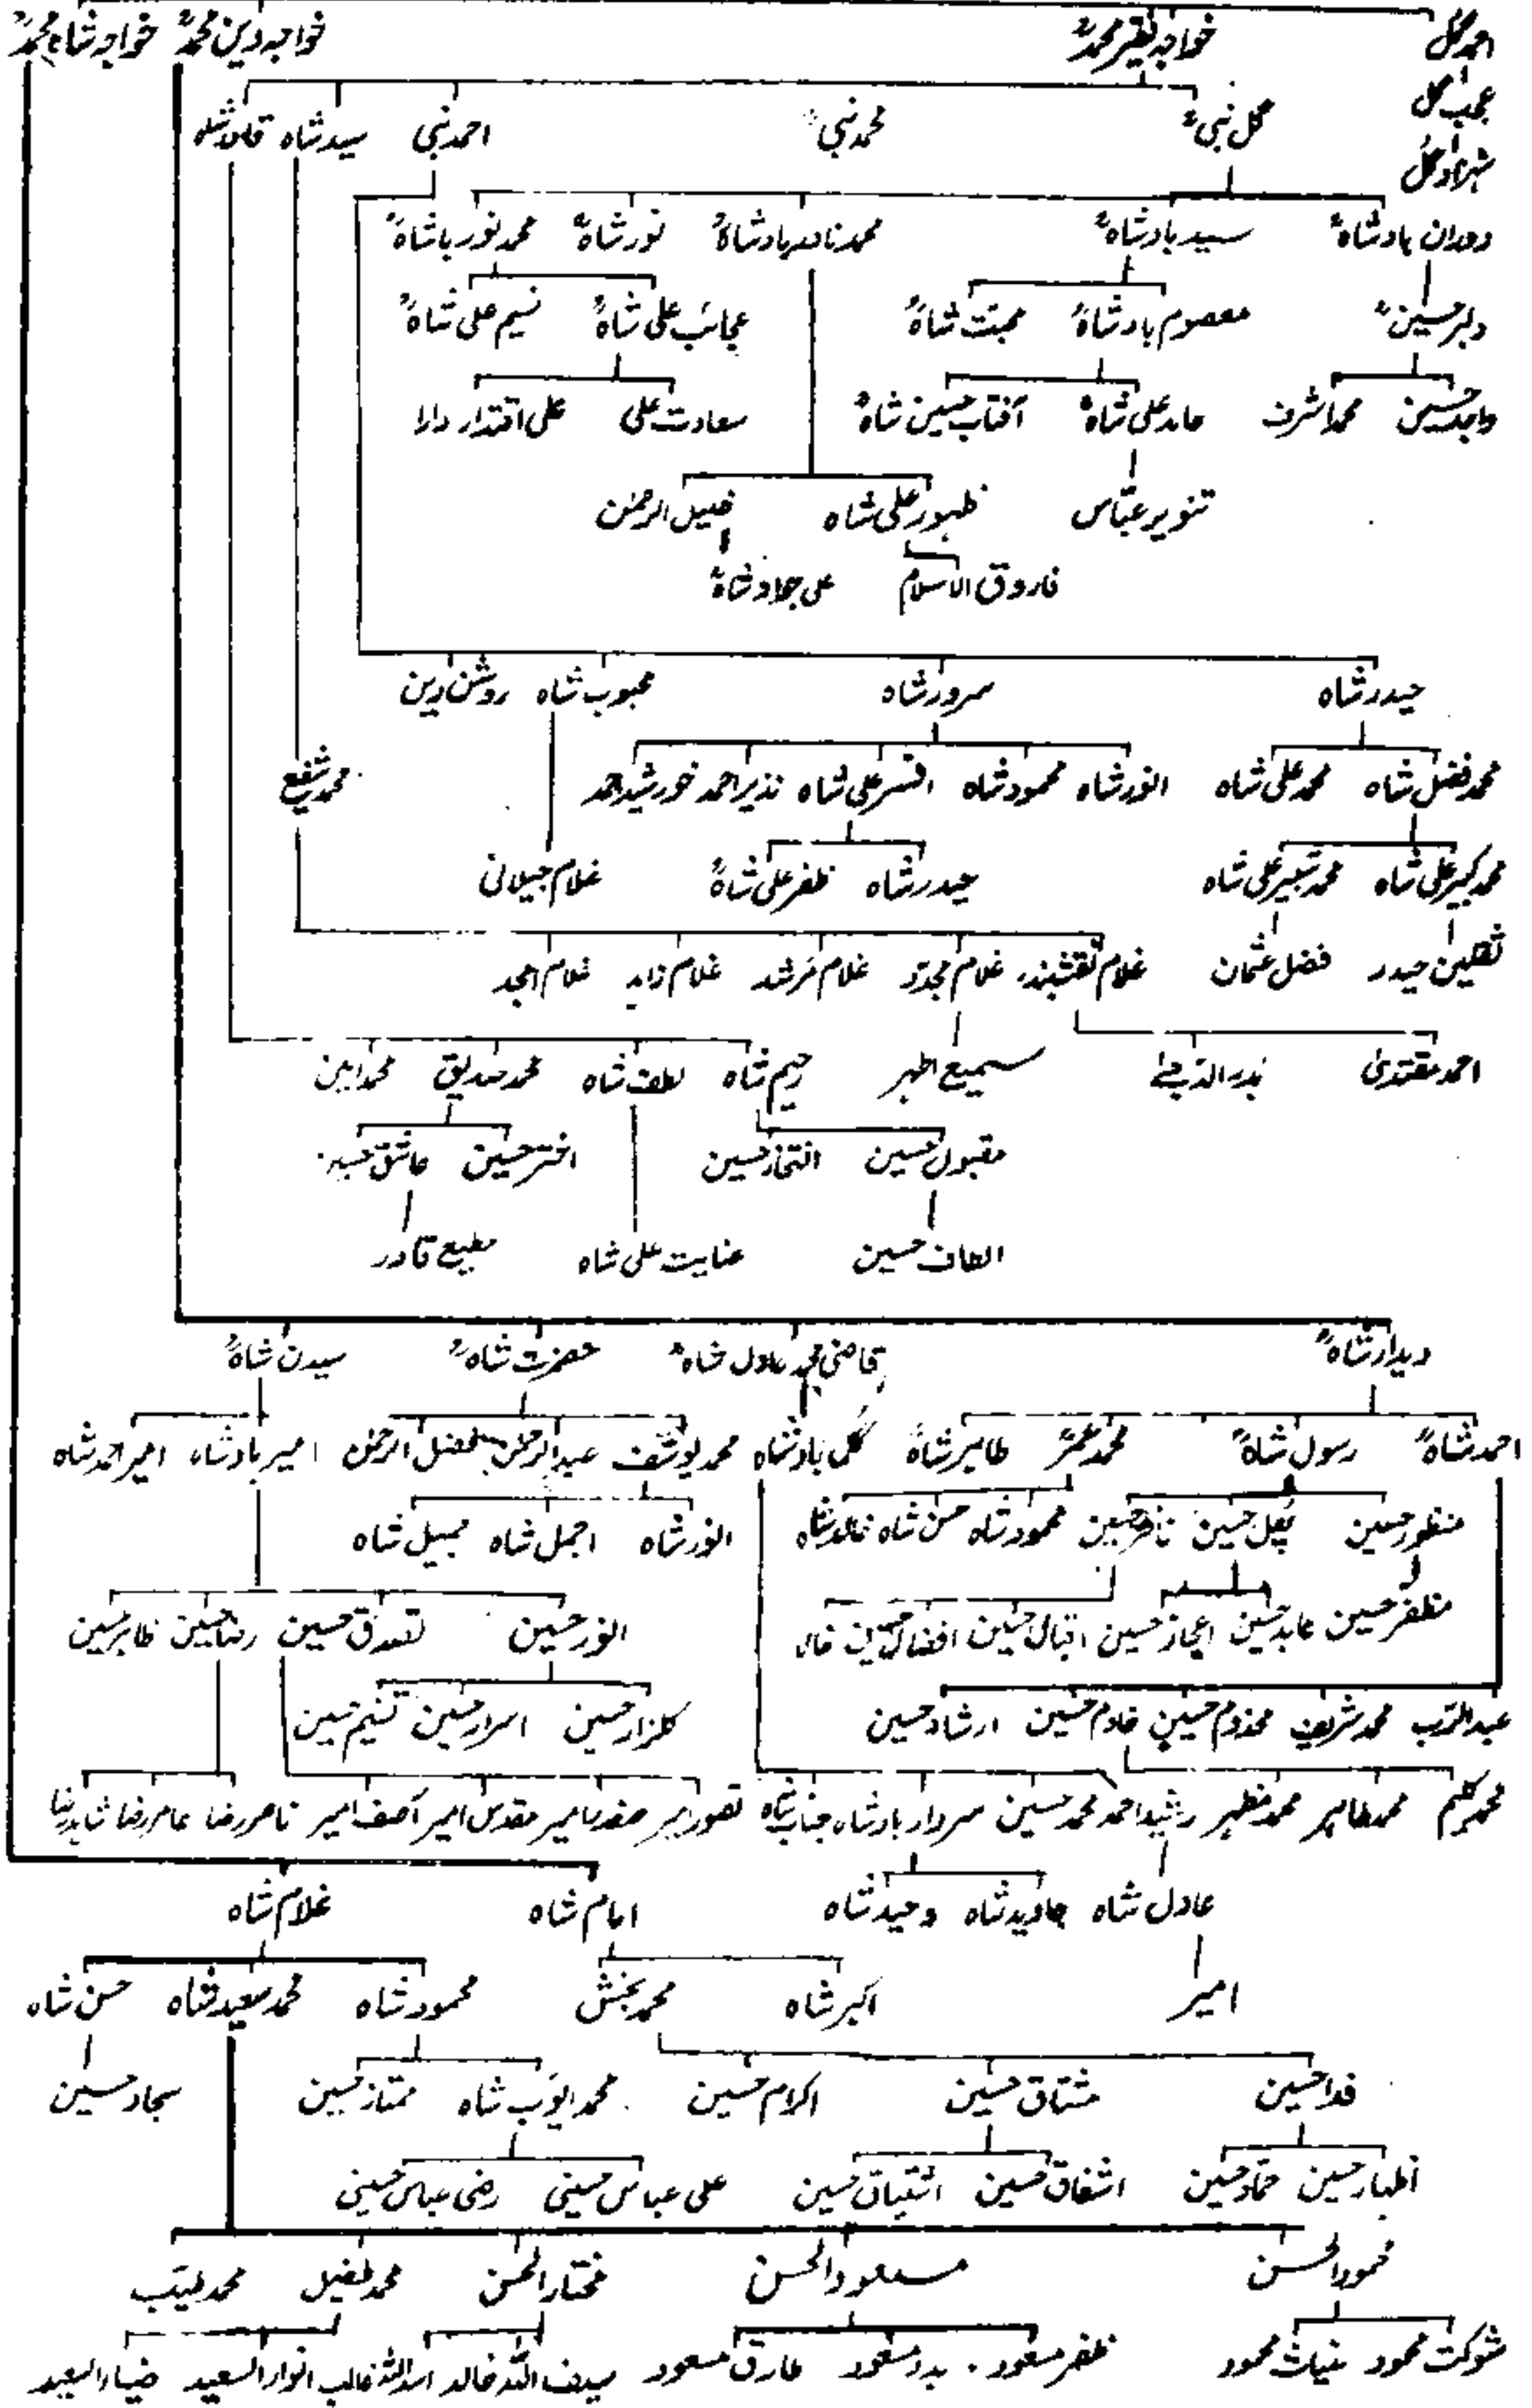 احمد گل خواجہ فقیر محمدؒ خواجہ دین محمدؒ خواجہ شاہ محمدؒ
عجب گل
گل نبیؒ محمد نبیؒ احمد نبی سید شاہ قلندر شاہ
شہزاد گل
دوران بادشاہؒ سید بادشاہؒ محمد نادر بادشاہؒ نور شاہؒ محمد نور بادشاہؒ
دلبر حسینؒ معصوم بادشاہؒ محبت شاہؒ عجائب علی شاہؒ نسیم علی شاہؒ
واجد حسین محمد اشرف عابد علی شاہؒ آفتاب حسین شاہؒ سعادت علی علی اقتدار دارا
تنویر عباس ظہور علی شاہ خلیل الرحمٰن
فاروق الاسلام علی جواد شاہؒ
حیدر شاہ سرور شاہ محبوب شاہ روشن دین
محمد فضل شاہ محمد علی شاہ انور شاہ محمود شاہ افسر علی شاہ نذیر احمد خورشید احمد محمد شفیع
محمد کبیر علی شاہ محمد شبیر علی شاہ حیدر شاہ ظفر علی شاہؒ غلام جیلانی
ثقلین حیدر فضل عثمان غلام نقشبند غلام مجدد غلام مرشد غلام زاہد غلام امجد
احمد مقتدیٰ بدر الدجیٰ سمیع اطہر رحیم شاہ لطف شاہ محمد صدیق محمد امین
مقبول حسین افتخار حسین اختر حسین عاشق حسین
الطاف حسین عنایت علی شاہ مطیع قادر
دیدار شاہؒ قاضی محمد عادل شاہؒ حضرت شاہؒ سیدن شاہؒ
احمد شاہؒ رسول شاہؒ محمد عمرؒ طاہر شاہؒ گل بادشاہ محمد یوسف عبدالرحمٰن فضل الرحمٰن امیر بادشاہ امیر احمد شاہ
منظور حسین پھل حسین ناظر حسین محمود شاہ حسن شاہ خالد شاہ انور شاہ اجمل شاہ جمیل شاہ
مظفر حسین عابد حسین اعجاز حسین اقبال حسین افضال حسین انور حسین تصدق حسین رضا حسین طاہر حسین
عبدالرب محمد شریف مخدوم حسین خادم حسین ارشاد حسین گلزار حسین اسرار حسین تسنیم حسین
محمد کلیم محمد طاہر محمد مظہر رشید احمد محمد حسین سردار بادشاہ جناب شاہ تصور امیر صفدر امیر مقدس امیر آصف امیر ناصر رضا عامر رضا شاہد رضا
عادل شاہ جاوید شاہ وحید شاہ امام شاہ غلام شاہ
امیر اکبر شاہ محمد بخش محمود شاہ محمد سعید شاہ حسن شاہ
فدا حسین مشتاق حسین اکرام حسین محمد ایوب شاہ ممتاز حسین سجاد حسین
اظہار حسین حماد حسین اشفاق حسین اشتیاق حسین علی عباس حسینی رضی عباس حسینی
محمود الحسن مسعود الحسن مختار الحسن محمد طفیل محمد طیب
شوکت محمود غیاث محمود ظفر مسعود بدر مسعود طارق مسعود سیف اللہ خالد اسد اللہ غالب انوار السعید ضیاء السعید